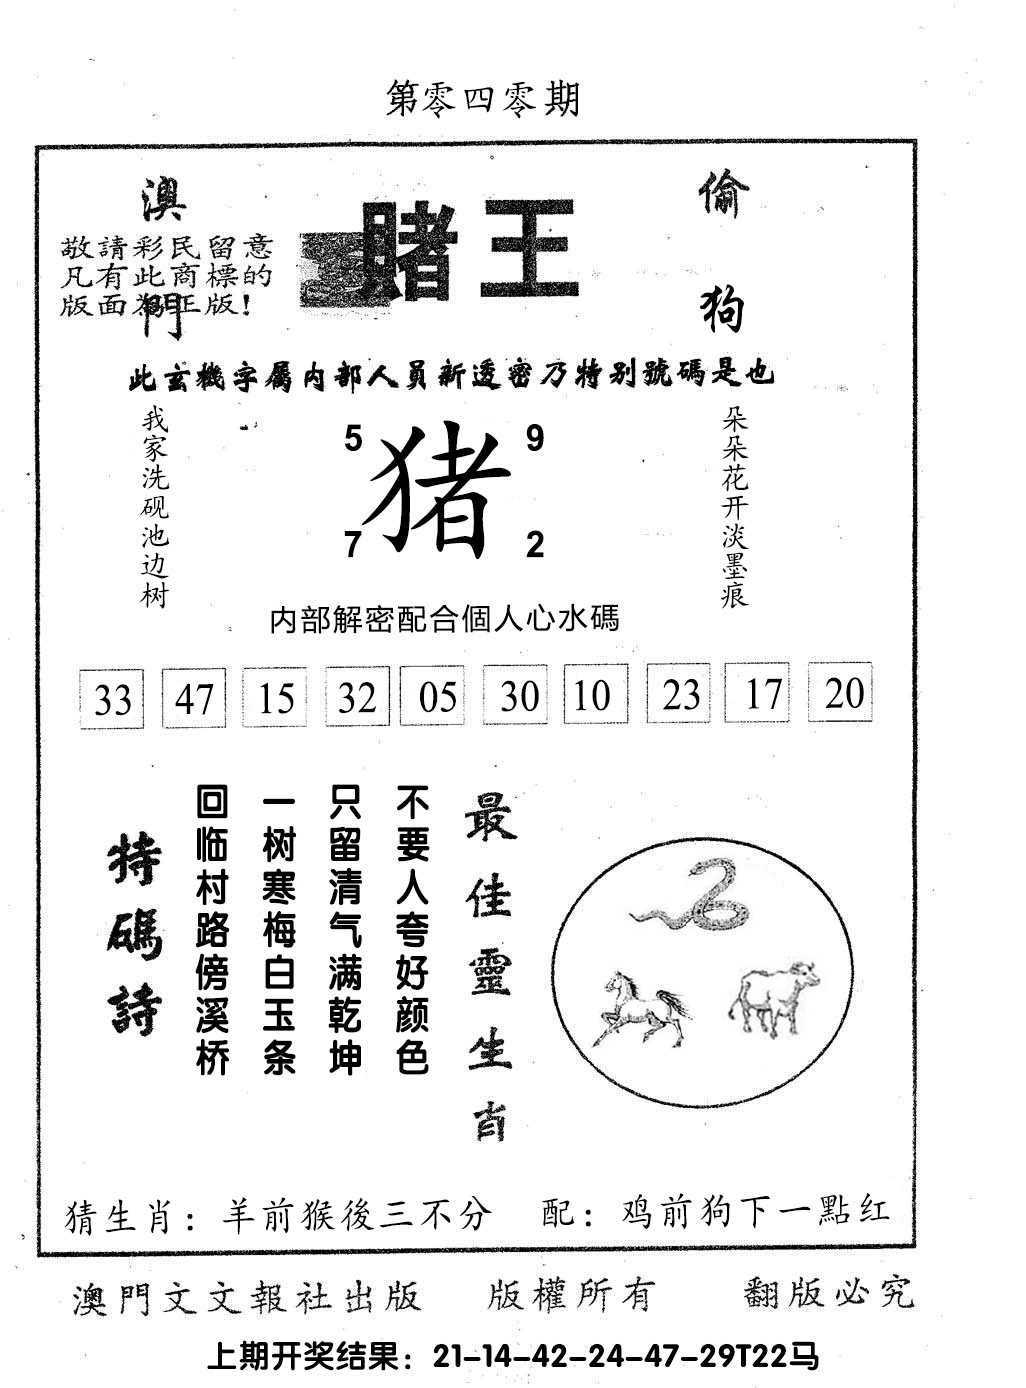 第零四零期
澳門
賭王
偷狗
敬請彩民留意
凡有此商標的
版面為正版!
此玄機字屬内部人員新透密乃特别號碼是也
我家洗砚池边树
5 9
猪
7 2
朵朵花开淡墨痕
内部解密配合個人心水碼
33 47 15 32 05 30 10 23 17 20
特碼詩
不要人夸好颜色
只留清气满乾坤
一树寒梅白玉条
回临村路傍溪桥
最佳靈生肖
猜生肖：羊前猴後三不分 配：鸡前狗下一點红
澳門文文報社出版 版權所有 翻版必究
上期开奖结果：21-14-42-24-47-29T22马